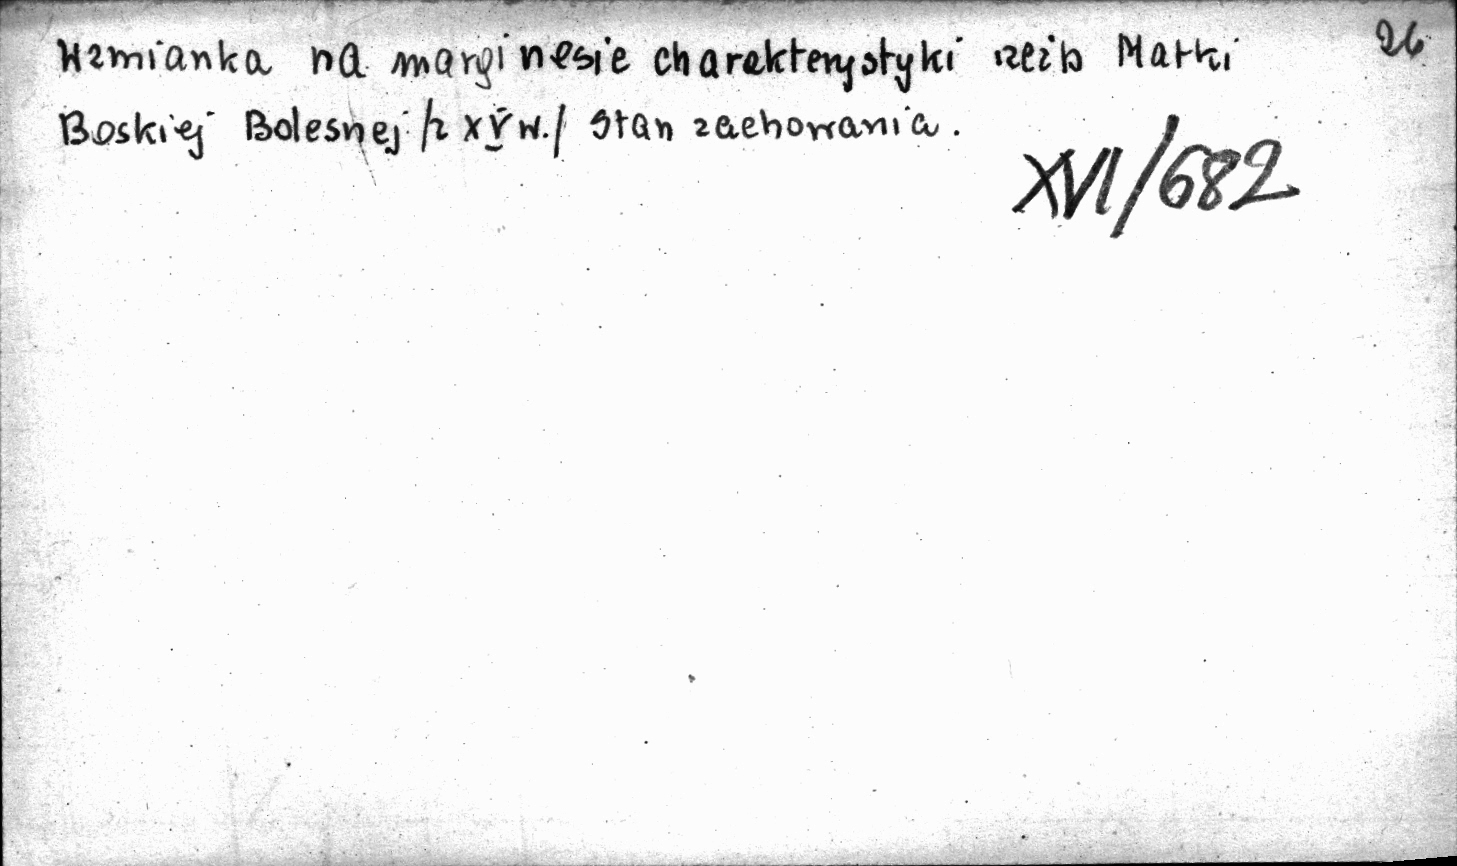 Wzmianka na marginesie charakterystyki rzeźb Matki 26
Boskiej Bolesnej /z XV w./ Stan zachowania.
XVI/682